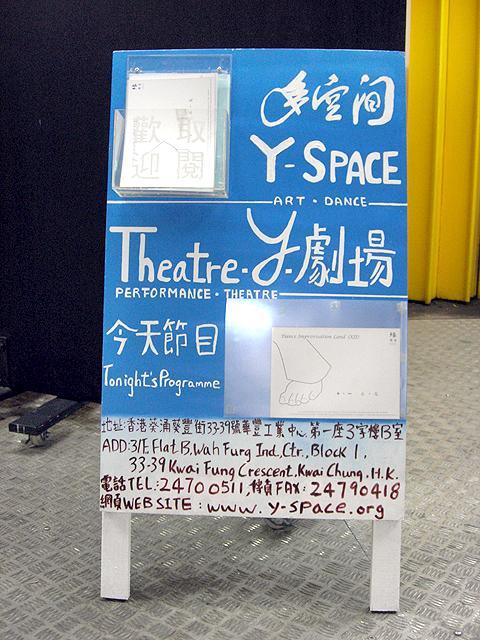 歡取
迎閱
多空间
Y-SPACE
ART · DANCE
Theatre-Y-劇場
PERFORMANCE · THEATRE
今天節目
Tonight's Programme
Dance Improvisation Land (XII)
地址:香港葵涌葵豐街33-39號華豐工業中心第一座3字樓B室
ADD:3/E Flat B, Wah Fung Ind. Ctr., Block 1,
33-39 Kwai Fung Crescent, Kwai Chung, H.K.
電話TEL:2470 0511, 傳真FAX:24790418
網頁WEBSITE:www.y-space.org